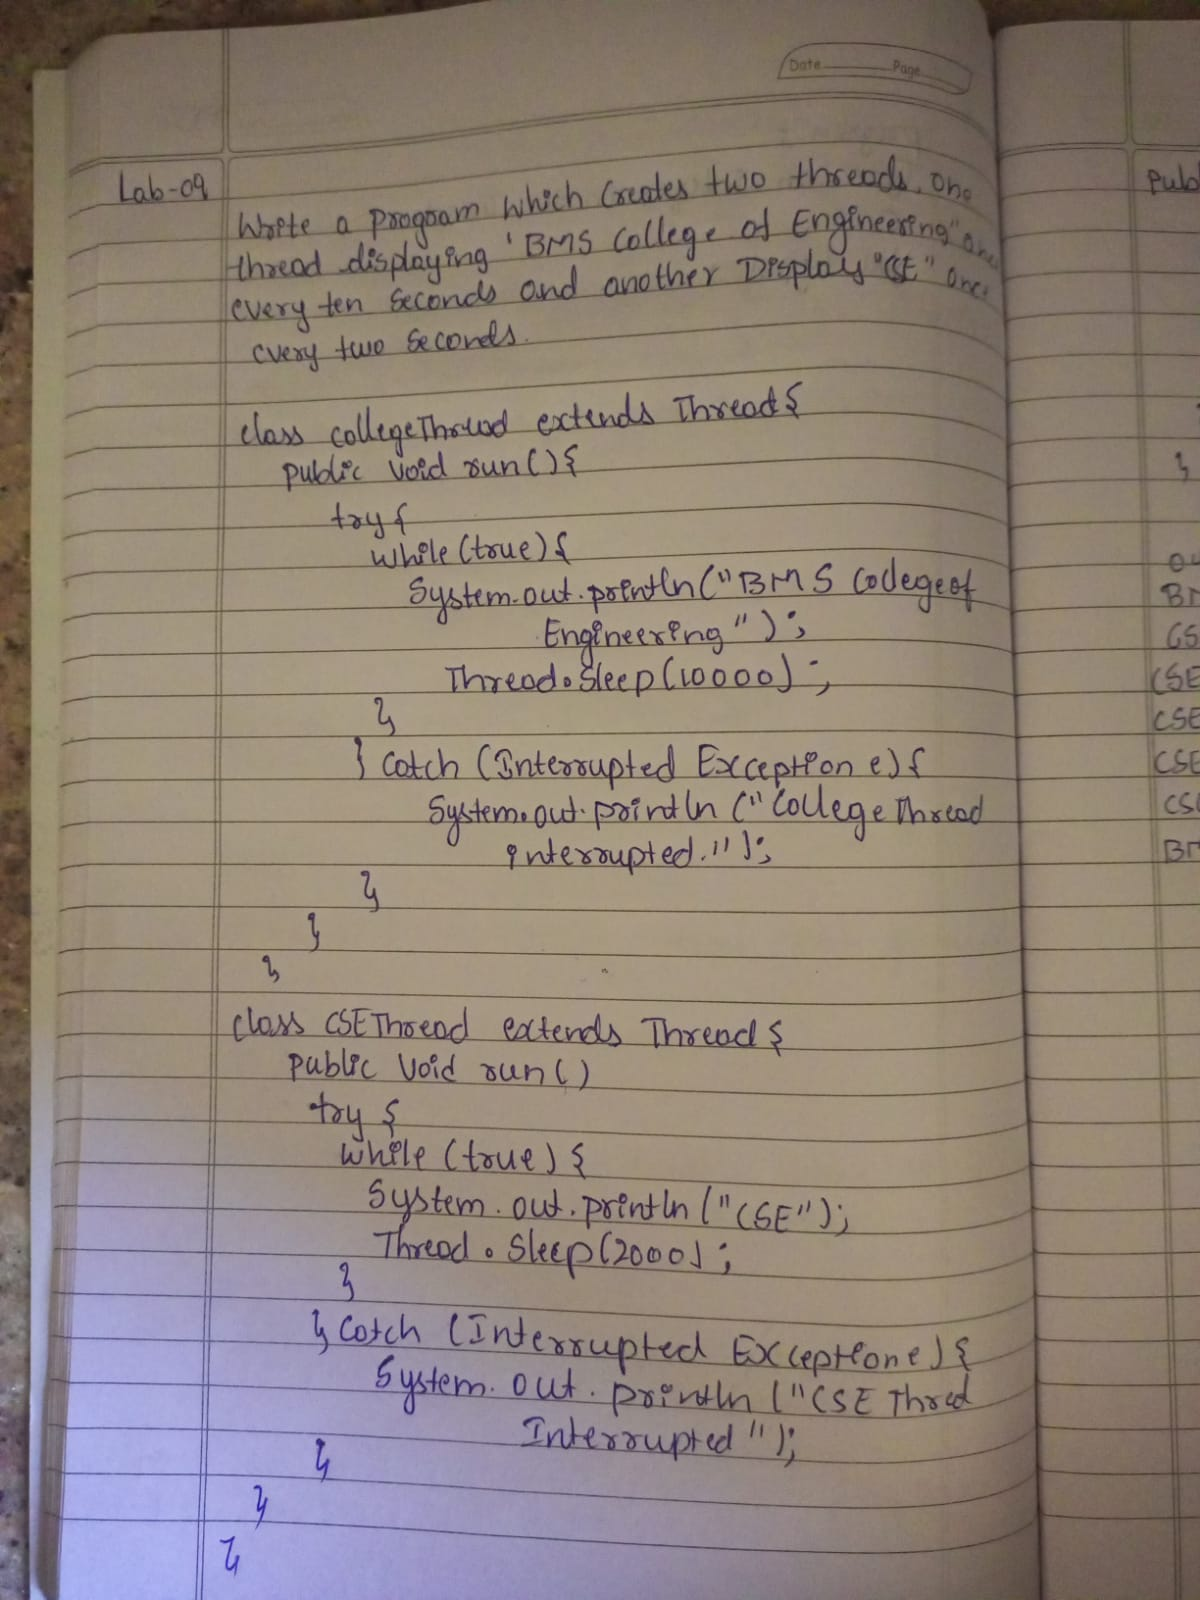 Date Page
Lab-09
Write a program which Creates two threads, one
thread displaying 'BMS College of Engineering"
every ten seconds and another Display "CSE" once
every two seconds.
class collegeThread extends Thread{
public void run(){
try{
while(true){
System.out.println("BMS College of
Engineering");
Thread.Sleep(10000);
}
} catch (Interrupted Exception e){
System.out.println ("College Thread
interrupted.");
}
}
}
class CSEThread extends Thread{
public void run()
try {
while (true) {
System.out.println("CSE");
Thread.Sleep(2000);
}
} catch (Interrupted Exception e) {
System.out.println ("CSE Thred
Interrupted");
}
}
}
}
CSE
CSE
CSE